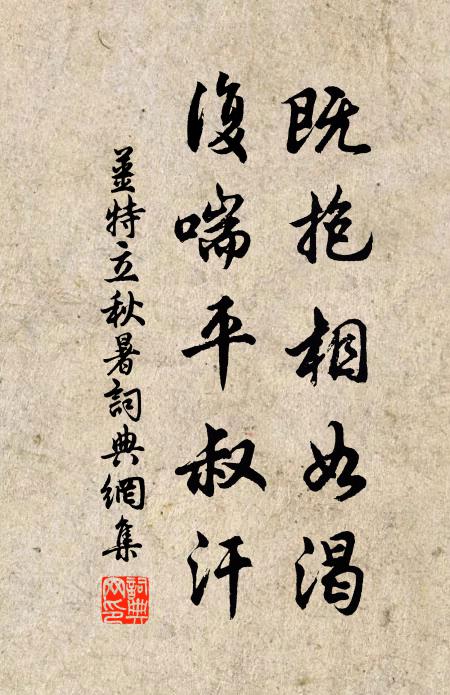 既抱相如渴
復喘平叔汗
姜特立秋暑詞典網集
詞典
网印